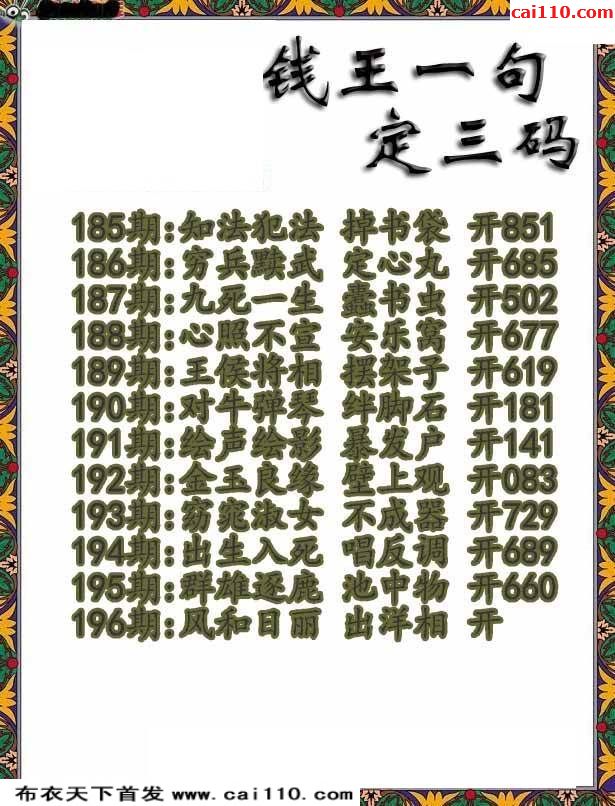 cai110.com
钱王一句
定三码
185期:知法犯法 掉书袋 开851
186期:穷兵黩武 定心丸 开685
187期:九死一生 蠹书虫 开502
188期:心照不宣 安乐窝 开677
189期:王侯将相 摆架子 开619
190期:对牛弹琴 绊脚石 开181
191期:绘声绘影 暴发户 开141
192期:金玉良缘 壁上观 开083
193期:窈窕淑女 不成器 开729
194期:出生入死 唱反调 开689
195期:群雄逐鹿 池中物 开660
196期:风和日丽 出洋相 开
布衣天下首发 www.cai110.com